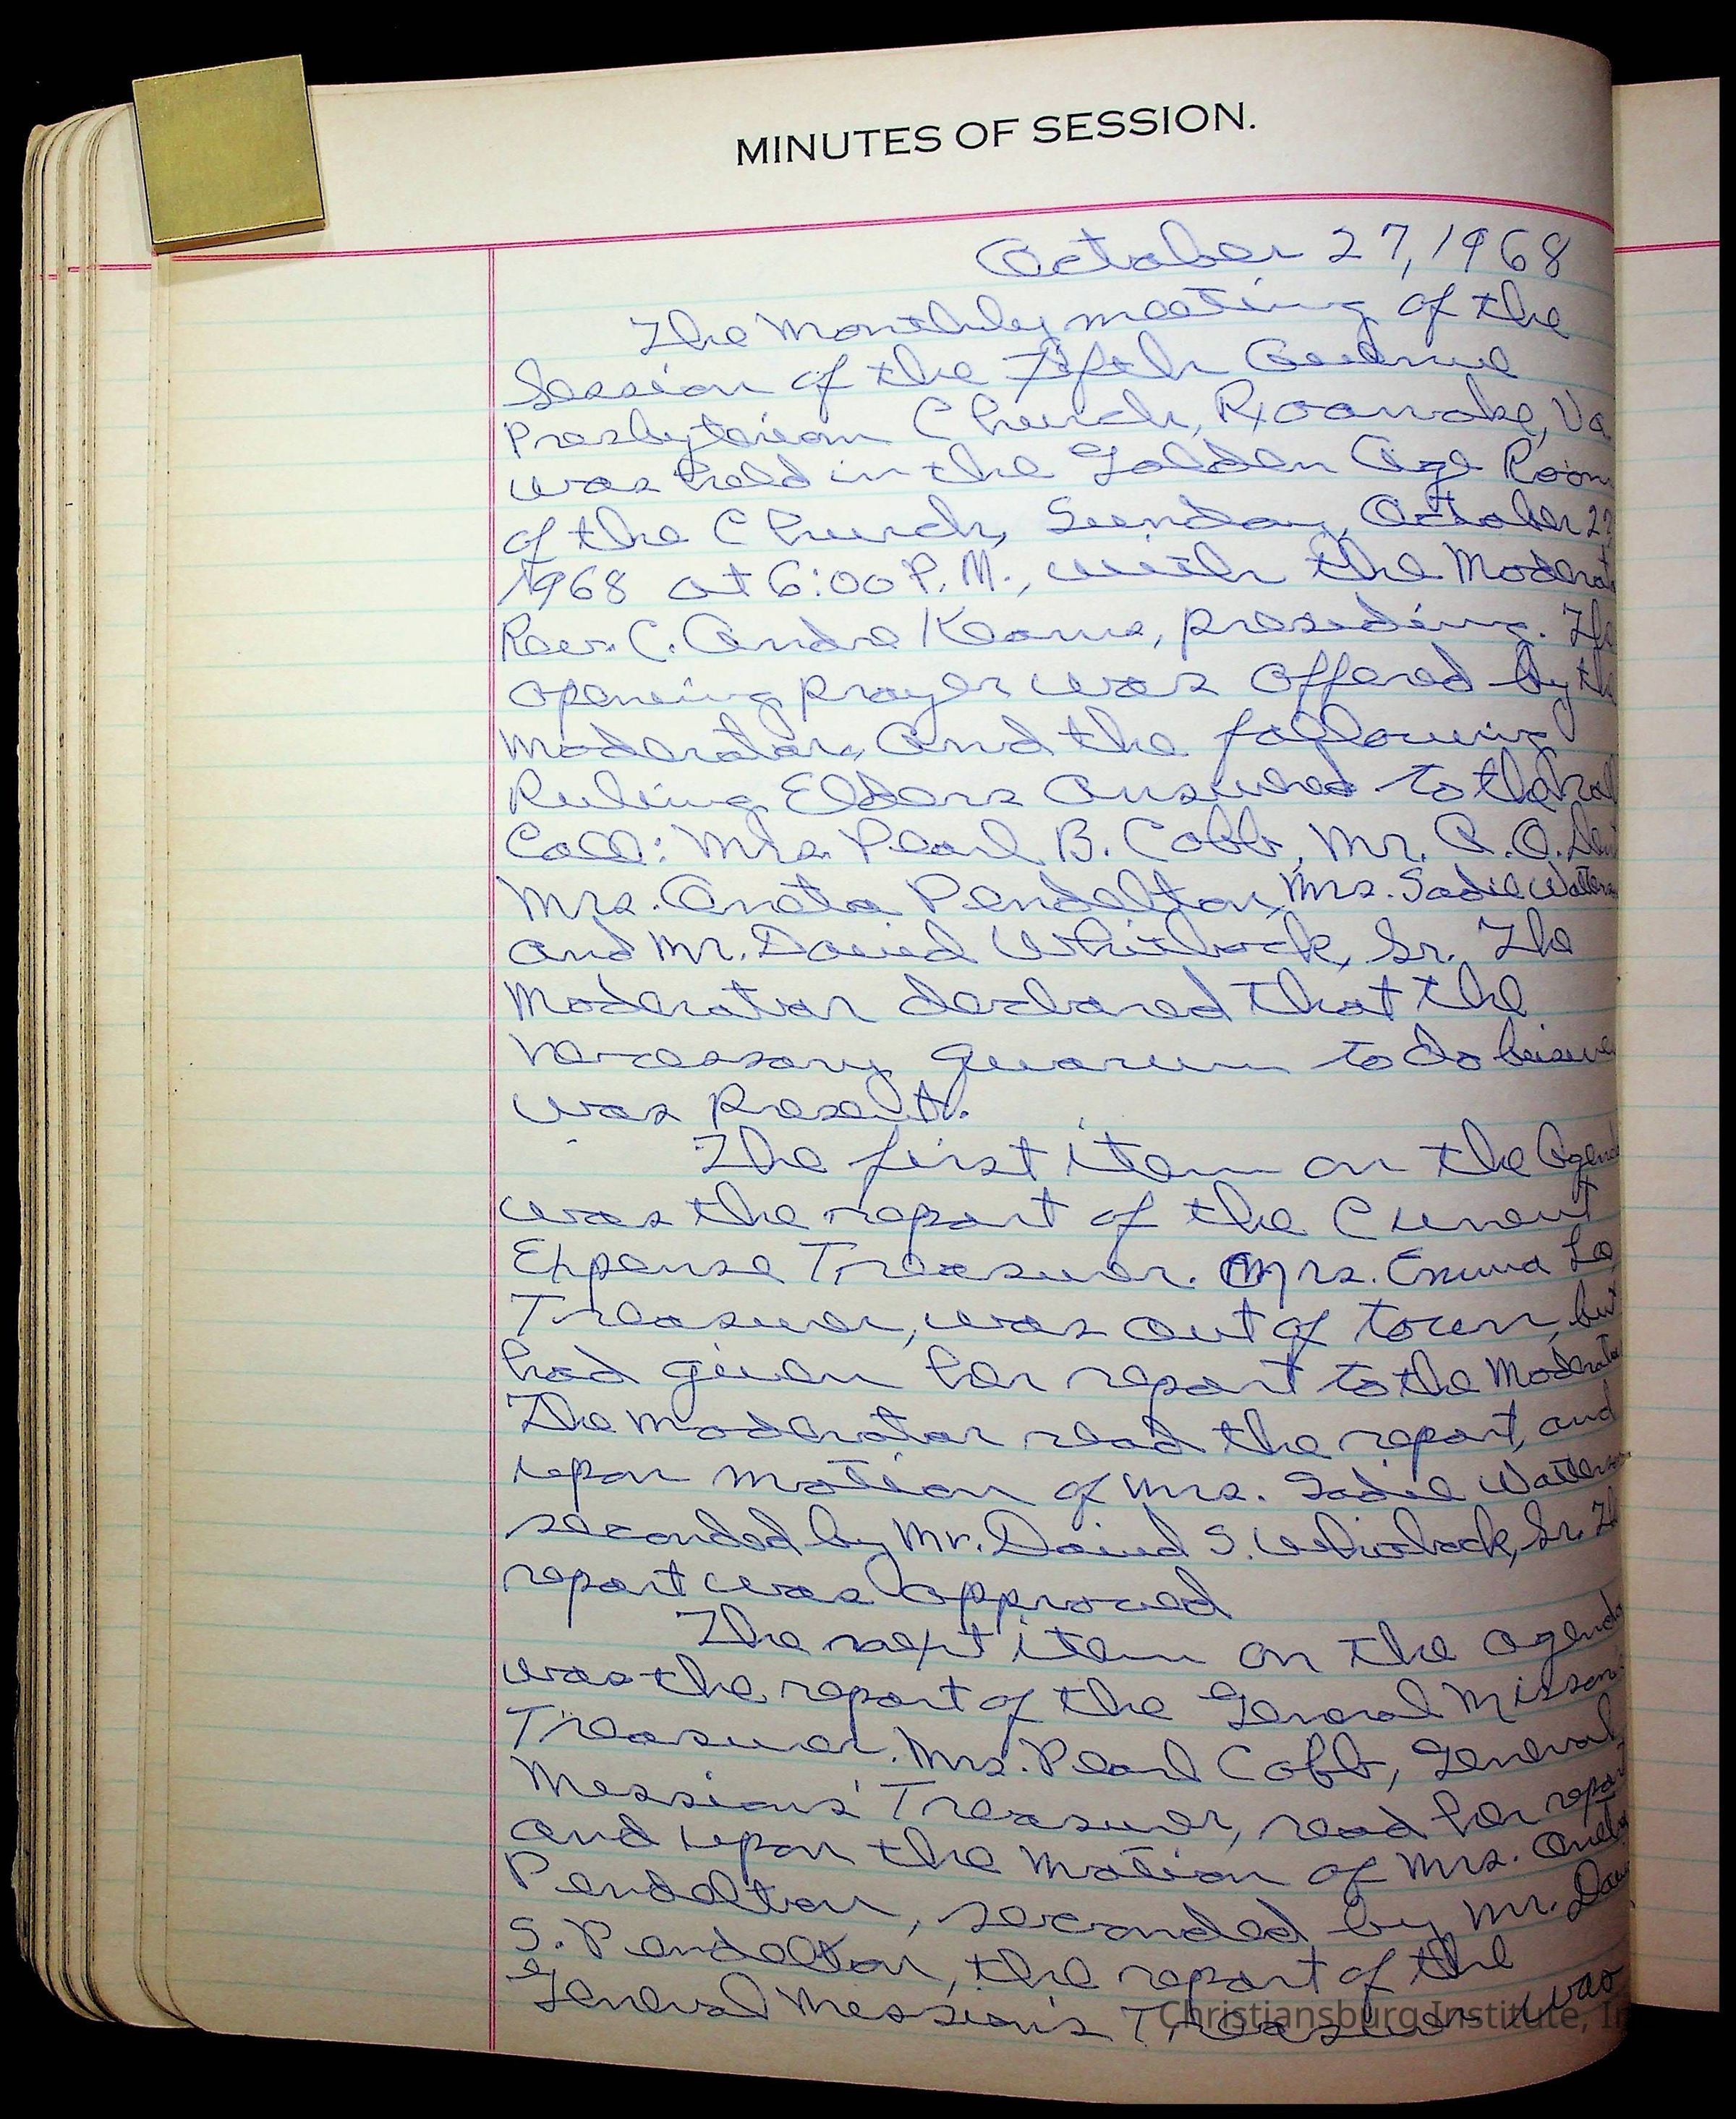 MINUTES OF SESSION.
October 27, 1968
The Monthly meeting of the
Session of the Fifth Avenue
Presbyterian Church, Roanoke, Va.
was held in the Golden Age Room
of the Church, Sunday, October 27
1968 at 6:00 P.M., with the Moderat
Rev. C. Andre Kearns, presiding. The
opening prayer was offered by the
moderator, and the following
Ruling Elders answered to the roll
Call: Mrs. Pearl B. Cobb, Mr. A. O.
Mrs. Aneta Pendelton, Mrs. Sadie Watterson
and Mr. David Whitlock, Sr. The
Moderator declared that the
necessary quorum to do business
was present.
The first item on the Agenda
was the report of the Current
Expense Treasurer. Mrs. Emma Lee,
Treasurer, was out of town, but
had given her report to the Moderator
The moderator read the report, and
upon motion of Mrs. Sadie Watterson
seconded by Mr. David S. Whitlock, Sr. The
report was approved
The next item on the agenda
was the report of the General Mission
Treasurer. Mrs. Pearl Cobb, General
Messions' Treasurer, read her report
and upon the motion of Mrs. Aneta
Pendelton, seconded by Mr. Dav
S. Pendelton, the report of the
General Mession's Treasurer was
Christiansburg Institute, In